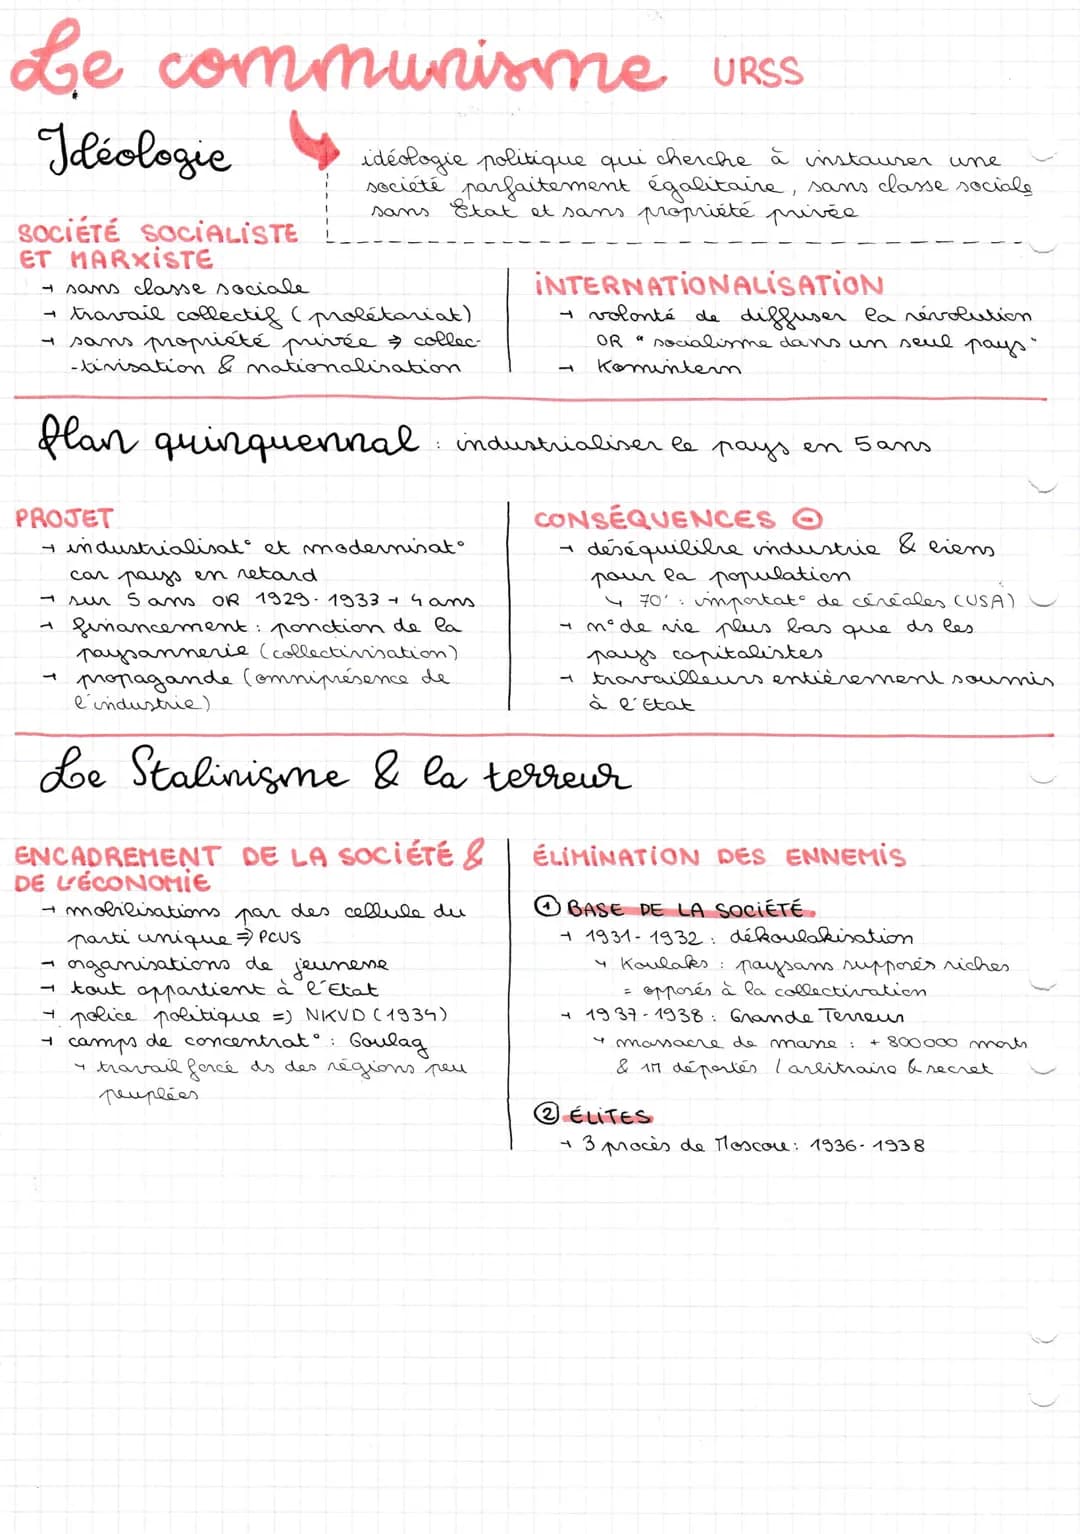 Le communisme URSS
Idéologie
idéologie politique qui cherche à instaurer une
société parfaitement égalitaire, sans classe sociale
sans Etat et sans propriété privée
SOCIÉTÉ SOCIALISTE
ET MARXISTE
→ sans classe sociale
→ travail collectif (prolétariat)
→ sans propriété privée → collec-
-tivisation & nationalisation
INTERNATIONALISATION
→ volonté de diffuser la révolution
OR "socialisme dans un seul pays"
→ Komintern
Plan quinquennal : industrialiser le pays en 5 ans
PROJET
→ industrialisat° et modernisat°
car pays en retard
→ sur 5 ans OR 1929-1933 → 4 ans
→ financement : ponction de la
paysannerie (collectivisation)
→ propagande (omniprésence de
l'industrie)
CONSÉQUENCES ⊖
→ déséquilibre industrie & biens
pour la population
↳ 70' : importat° de céréales (USA)
→ n° de vie plus bas que ds les
pays capitalistes
→ travailleurs entièrement soumis
à l'Etat
Le Stalinisme & la terreur
ENCADREMENT DE LA SOCIÉTÉ &
DE L'ÉCONOMIE
→ mobilisations par des cellule du
parti unique ⇒ PCUS
→ organisations de jeunesse
→ tout appartient à l'Etat
→ police politique =) NKVD (1934)
→ camps de concentrat° : Goulag
↳ travail forcé ds des régions peu
peuplées
ÉLIMINATION DES ENNEMIS
① BASE DE LA SOCIÉTÉ
→ 1931-1932 : dékoulakisation
↳ Koulaks : paysans supposés riches
= opposés à la collectivation
→ 1937-1938 : Grande Terreur
↳ massacre de masse : + 800 000 morts
& 1M déportés / arbitraire & secret
② ÉLITES
→ 3 procès de Moscou : 1936-1938